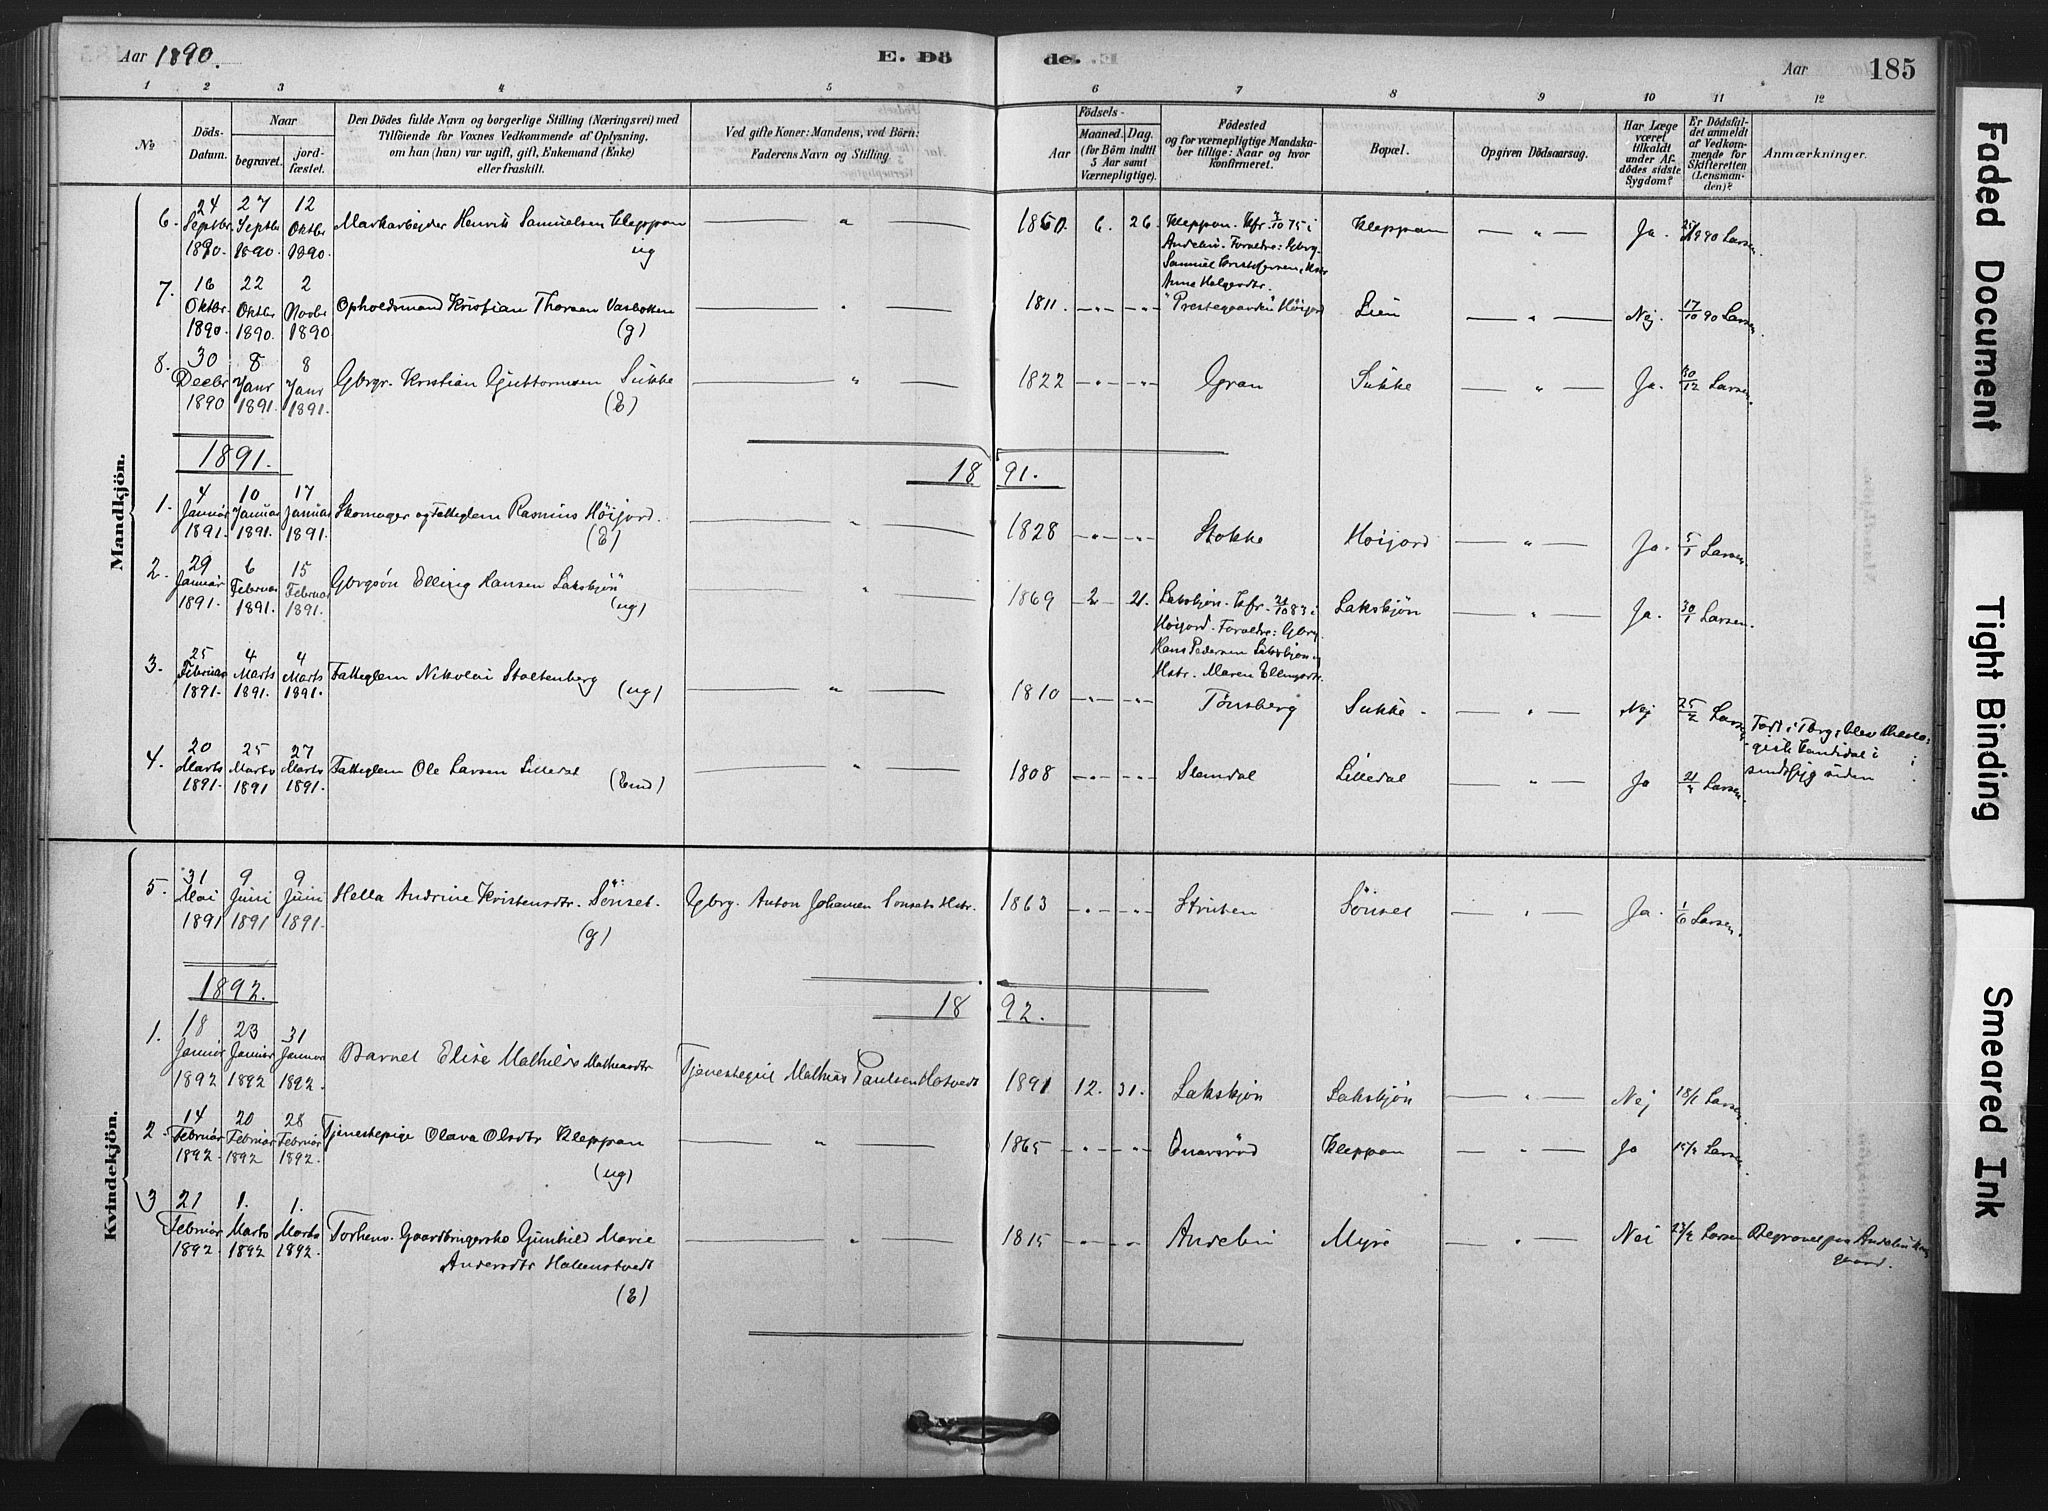 Aar 1890.
E. Dö
de.
Aar
185
1 2 3 4 5 6 7 8 9 10 11 12
№
Döds-Datum.
Naar
begravet.
jord-fæstet.
Den Dödes fulde Navn og borgerlige Stilling (Næringsvei) med
Tilföiende for Voxnes Vedkommende af Oplysning,
om han (hun) var ugift, gift, Enkemand (Enke)
eller fraskilt.
Ved gifte Koner: Mandens, ved Börn:
Faderens Navn og Stilling
Födsels-
Aar
Maaned. Dag.
(for Börn indtil
5 Aar samt
Værnepligtige).
Födested
og for værnepligtige Mandska-
ber tillige: Naar og hvor
konfirmeret.
Bopæl.
Opgiven Dödsaarsag.
Har Læge
været
tilkaldt
under Af-
dödes sidste
Sygdom?
Er Dödsfal-
det anmeldt
af Vedkom-
mende for
Skifteretten
(Lensman-
den)?
Anmærkninger.
Mandkjön.
6. 24 Septbr 1890. 27 Septbr 1890. 12 Oktbr 1890. Markarbejder Henrik Samuelsen Kleppan ug — " — 1860. 6. 26. Kleppan. Kfr. 75 i
Andebu. Forældre: Gbrg.
Samuel Kristofersen,
Anne Helgesdtr. Kleppan — " — Ja. 90 Larsen.
7. 16 Oktbr 1890. 22 Oktbr 1890. 2 Novbr 1890 Opholdsmand Kristian Thorsen Vasbotten (g) — " — 1811. — " — — " — "Prestegaarden" Höijord Lien — " — Nej. 17/10 90 Larsen.
8. 30 Decbr 1890 8 Janr 1891. 8 Janr 1891. Gbrgr. Kristian Guttormsen Sukke (E) — " — 1822 — " — — " — Gran Sukke — " — Ja. 30/12 Larsen.
1891.
18 91.
1. 4 Januar 1891. 10 Januar 1891. 17 Januar 1891. Skomager og Fatteglem Rasmus Höijord. (E) — " — 1828 — " — — " — Stokke Höijord — " — Ja. 5/1 Larsen.
2. 29 Januar 1891. 6 Februar 1891. 15 Februar 1891. Gbrgsön Elling Hansen Lakskjön (ug) — " — 1869 2 21. Lakskjön. Kfr. 83 i
Höijord. Forældre: Gbrg.
Hans Pedersen Lakskjön og
Hstr. Maren Ellingsdtr. Lakskjön — " — Ja. 30/1 Larsen.
3. 25 Februar 1891. 4 Marts 1891. 4 Marts 1891. Fatteglem Nikolai Stoltenberg (ug) — " — 1810 — " — — " — Tönsberg Sukke. — " — Nej 25/2 Larsen
4. 20 Marts 1891. 25 Marts 1891 27 Marts 1891. Fatteglem Ole Larsen Lilledal (Em) — " — 1808 — " — — " — Slemdal Lilledal — " — Ja Larsen.
Kvindekjön.
5. 31 Mai 1891 9 Juni 1891 9 Juni 1891. Hella Andrine Kristensdtr. Sönset. (g) Gbrg. Anton Johansen Sönsets Hstr. 1863 — " — — " — Struten Sönset — " — Ja. 1/6 Larsen.
1892.
18 92.
1. 18 Januar 1892 23 Januar 1892 31 Januar 1892. Barnet Elise Mathilde Mathiasdtr Tjenestegut Mathias Paulsen Hotvedt 1891 12. 31. Lakskjön Lakskjön — " — Nej 18/1 Larsen
2. 14 Februar 1892. 20 Februar 1892 28 Februar 1892. Tjenestepige Olava Olsdtr Kleppan (ug) — " — 1865 — " — — " — Kleppan — " — Ja 15/2 Larsen.
3 21 Februar 1892 1. Marts 1892 1. Marts 1892. Gaardbrugerske Gunhild Marie
Andersdtr Halkenstvedt
(E) — " — 1815 — " — — " — Andebu Myre — " — Nei 23/2 Larsen Begravet paa Andebu Kirke
gaard.
Faded Document
Tight Binding
Smeared Ink